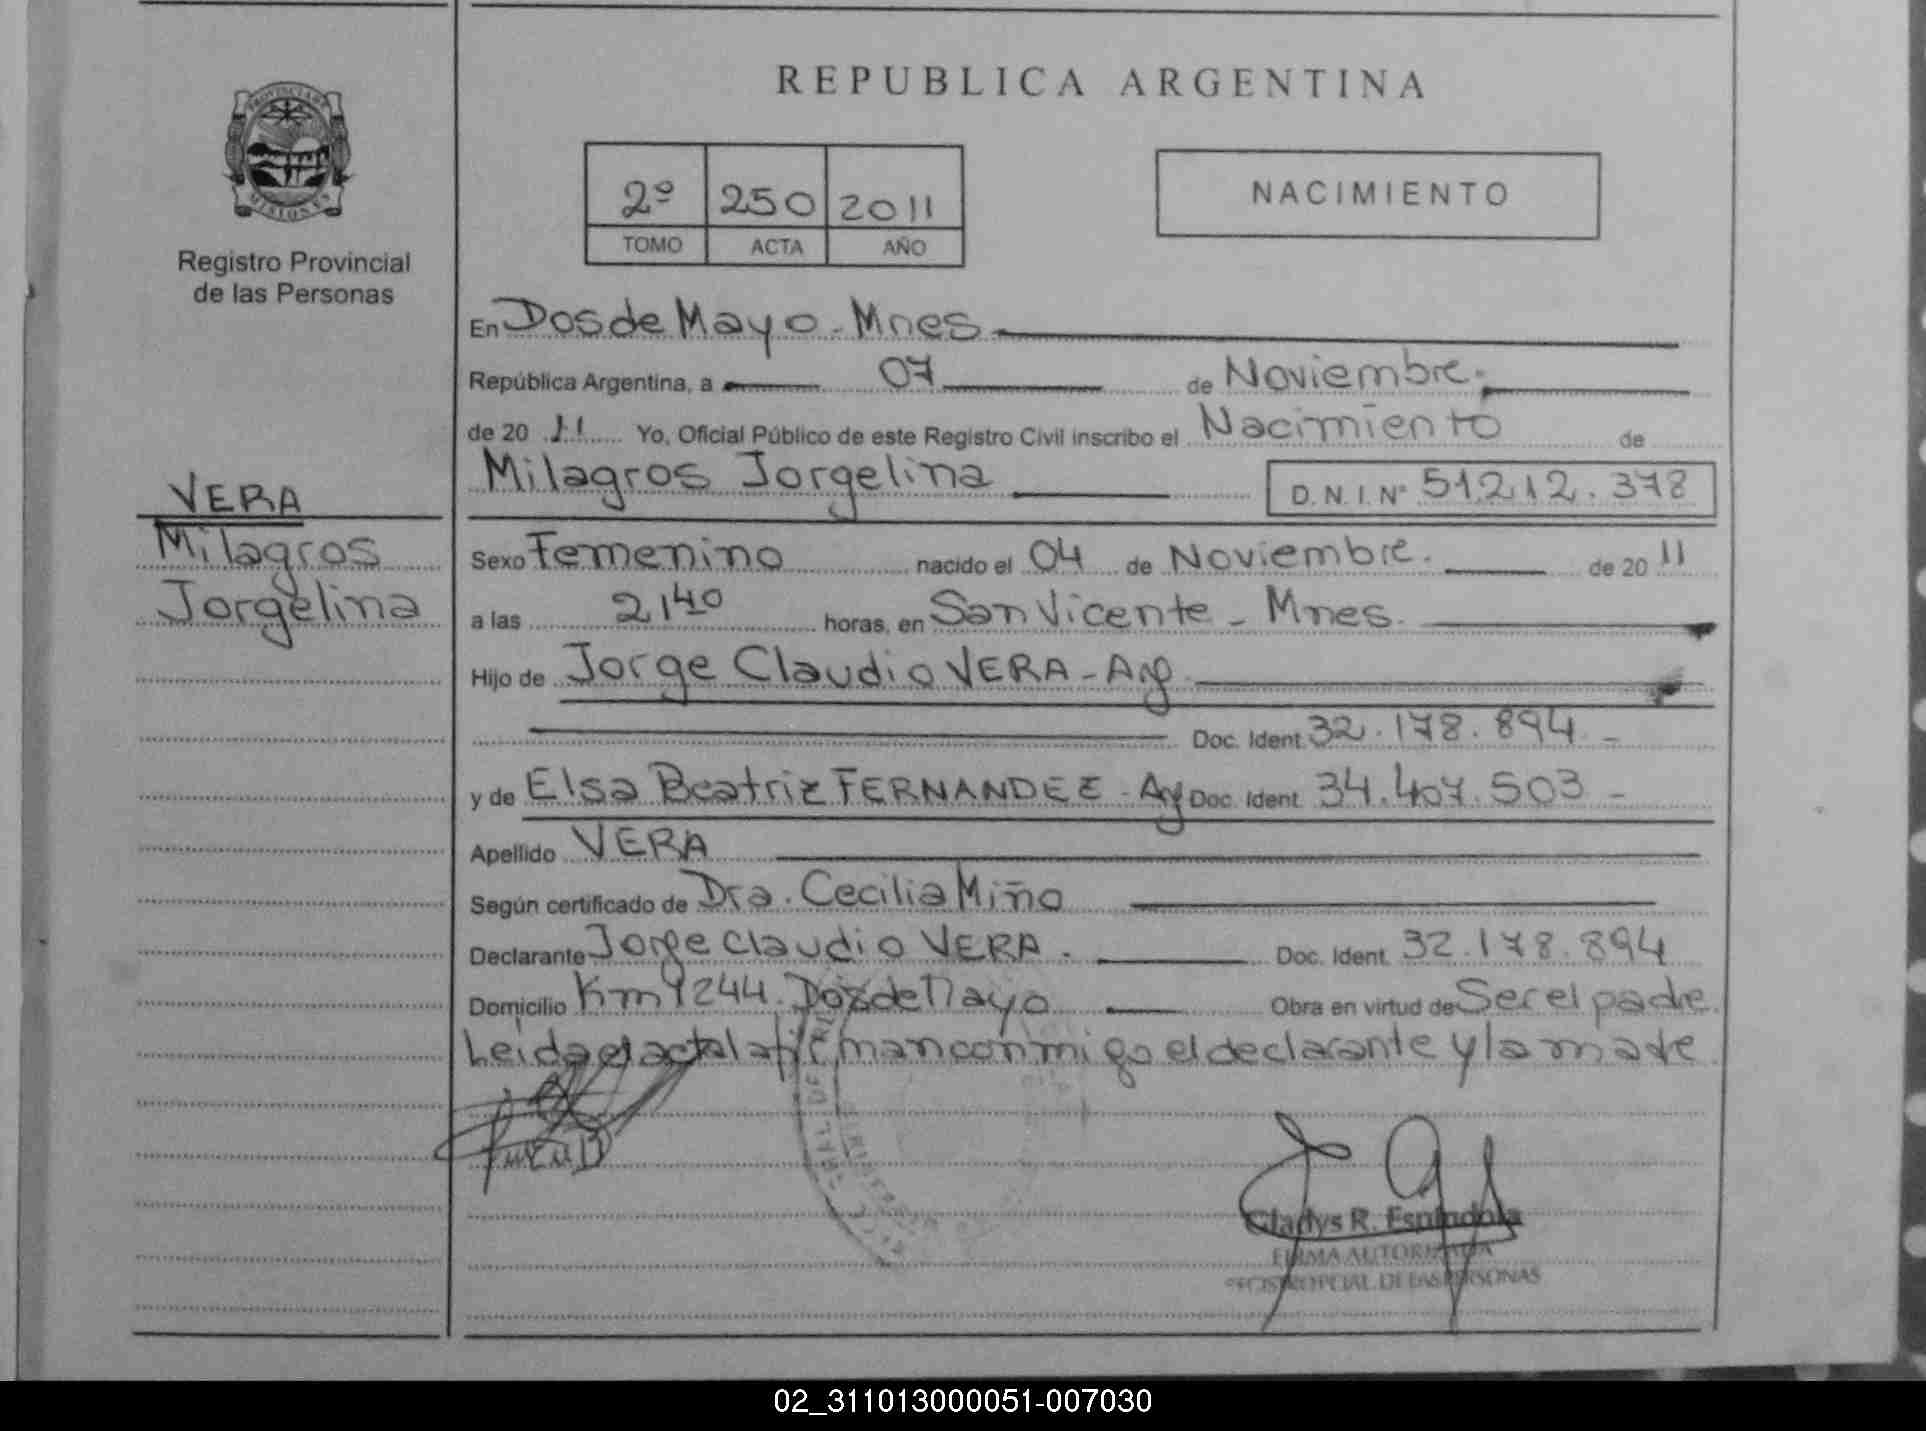 REPUBLICA ARGENTINA
PROVINCIA DE
MISIONES
Registro Provincial
de las Personas
2º 250 2011
TOMO ACTA AÑO
NACIMIENTO
En Dos de Mayo - Mnes
República Argentina, a 07 de Noviembre.
de 20 11 Yo, Oficial Público de este Registro Civil inscribo el Nacimiento de
Milagros Jorgelina D.N.I. Nº 51.212.378
VERA
Milagros
Jorgelina
Sexo Femenino nacido el 04 de Noviembre. de 20 11
a las 21 40 horas, en San Vicente - Mnes.
Hijo de Jorge Claudio VERA - Arg
Doc. Ident. 32.178.894 -
y de Elsa Beatriz FERNANDEZ - Arg Doc. Ident. 34.407.503 -
Apellido VERA
Según certificado de Dra. Cecilia Miño
Declarante Jorge Claudio VERA. Doc. Ident. 32.178.894
Domicilio Km 1244. Dos de Mayo Obra en virtud de Ser el padre
Leida el acta la firman conmigo el declarante y la madre
Gladys R. Espindola
FIRMA AUTORIZADA
REGISTRO PCIAL. DE LAS PERSONAS
02_311013000051-007030